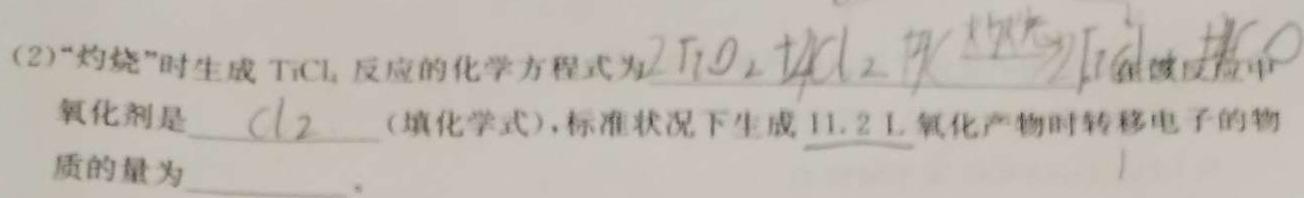 (2)“灼烧”时生成 TiCl₄ 反应的化学方程式为2TiO₂+4Cl₂+4C 灼烧 2TiCl₄+4CO 反应中
氧化剂是 Cl₂ (填化学式),标准状况下生成 11.2 L 氧化产物时转移电子的物
质的量为 。 1